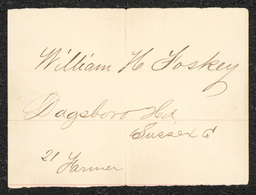 William H Foskey
Dagsboro Hd
Sussex C
21
Farmer